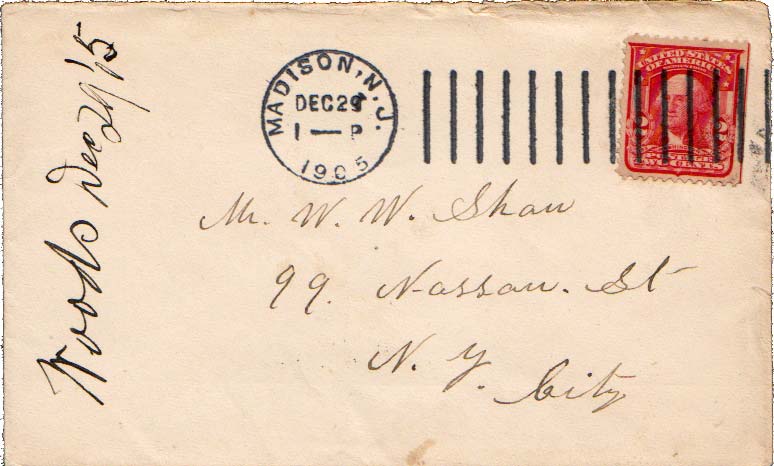 Woods Dec 29/15
MADISON, N.J.
DEC 29
1 — P
1905
UNITED STATES
OF AMERICA
2 2
POSTAGE
TWO CENTS
Mr. W. W. Shaw
99. Nassau. St
N. Y. City